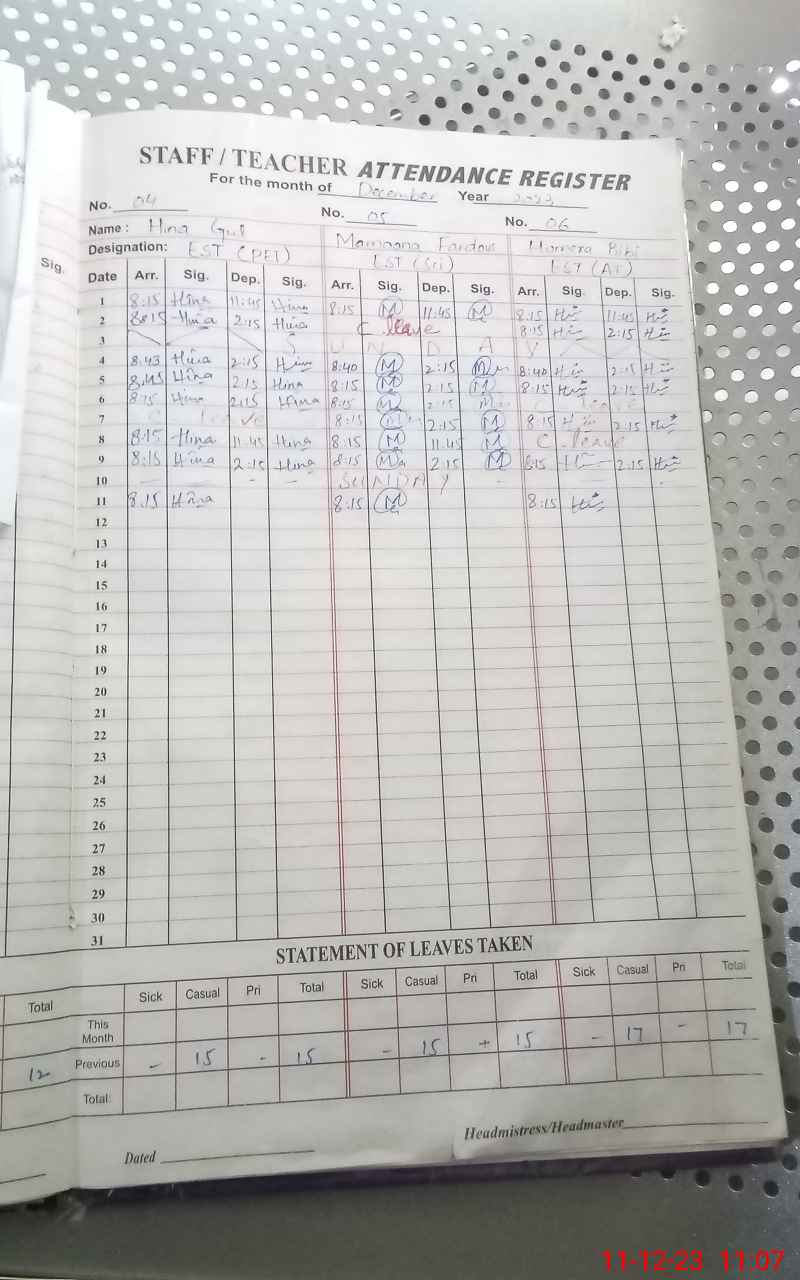 STAFF / TEACHER ATTENDANCE REGISTER
For the month of December Year 2023
No. 04 No. 05 No. 06
Name : Hina Gul
Designation: EST (PET) EST (Sci) EST (AT)
Sig.
Date Arr. Sig. Dep. Sig. Arr. Sig. Dep. Sig. Arr. Sig. Dep. Sig.
1 8:15 Hina 11:45 Hina 8:15 M 11:45 M 8:15 11:45
2 8:15 Hina 2:15 Hina C. leave 8:15 2:15
3 S U N D A Y
4 8:43 Hina 2:15 Hina 8:40 M 2:15 M 8:40 2:15
5 8:45 Hina 2:15 Hina 8:15 M 2:15 M 8:15 2:15
6 8:15 Hina 2:15 Hina 8:15 M 2:15 C. leave
7 C. leave 8:15 2:15 M 8:15 2:15
8 8:15 Hina 11:45 Hina 8:15 M 11:45 M C. leave
9 8:15 Hina 2:15 Hina 8:15 2:15 M 8:15 2:15
10 - - - - SUNDAY -
11 8:15 Hina 8:15 M 8:15
12
13
14
15
16
17
18
19
20
21
22
23
24
25
26
27
28
29
30
31
STATEMENT OF LEAVES TAKEN
Total Sick Casual Pri Total Sick Casual Pri Total Sick Casual Pri Total
This Month
12 Previous - 15 - 15 - 15 + 15 - 17 - 17
Total:
Dated Headmistress/Headmaster
11-12-23 11:07